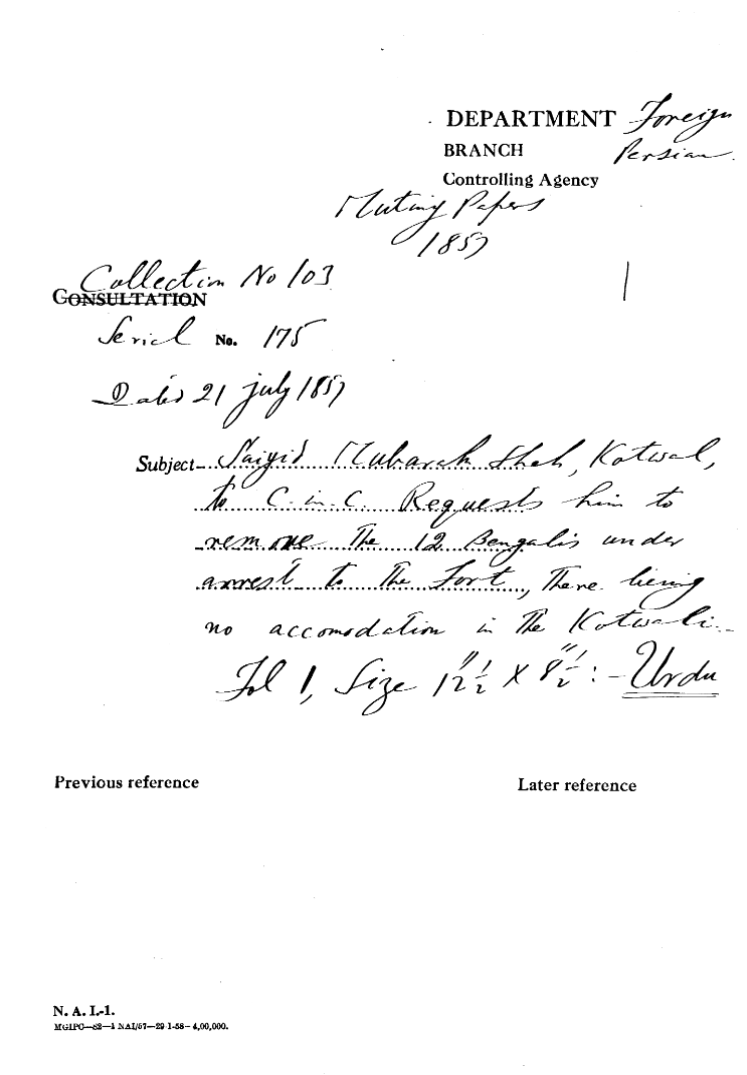 DEPARTMENT Foreign
BRANCH Persian
Controlling Agency
Mutiny Papers
1857
Collection No 103
CONSULTATION
Serial No. 175
Dated 21 july 1857
Subject Saiyid Mubarak Shah, Kotwal,
to C-in-C. Requests him to
remove The 12 Bengalis under
arrest to The Fort, There being
no accomodation in The Kotwali.-
Fol 1, Size 12"½ X 8"½ :- Urdu
Previous reference Later reference
N. A. I.-1.
MGIPC—S2—1 NAI/57—29-1-58—4,00,000.